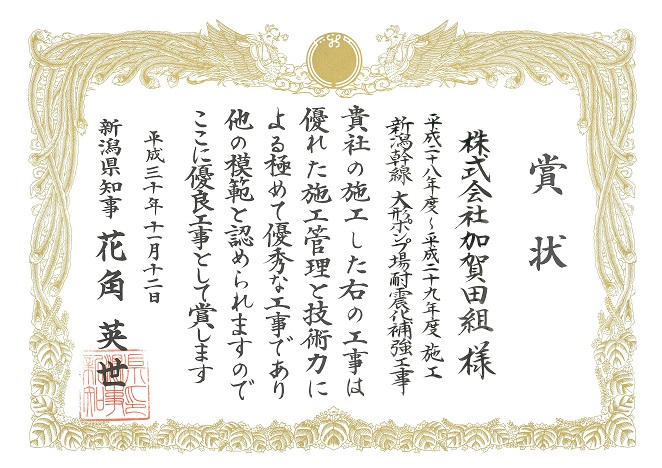 賞状
株式会社加賀田組 様
平成二十八年度~平成二十九年度 施工
新潟幹線 大形ポンプ場耐震化補強工事
貴社の施工した右の工事は
優れた施工管理と技術力に
よる極めて優秀な工事であり
他の模範と認められますので
ここに優良工事として賞します
平成三十年十一月十二日
新潟県知事 花角 英世